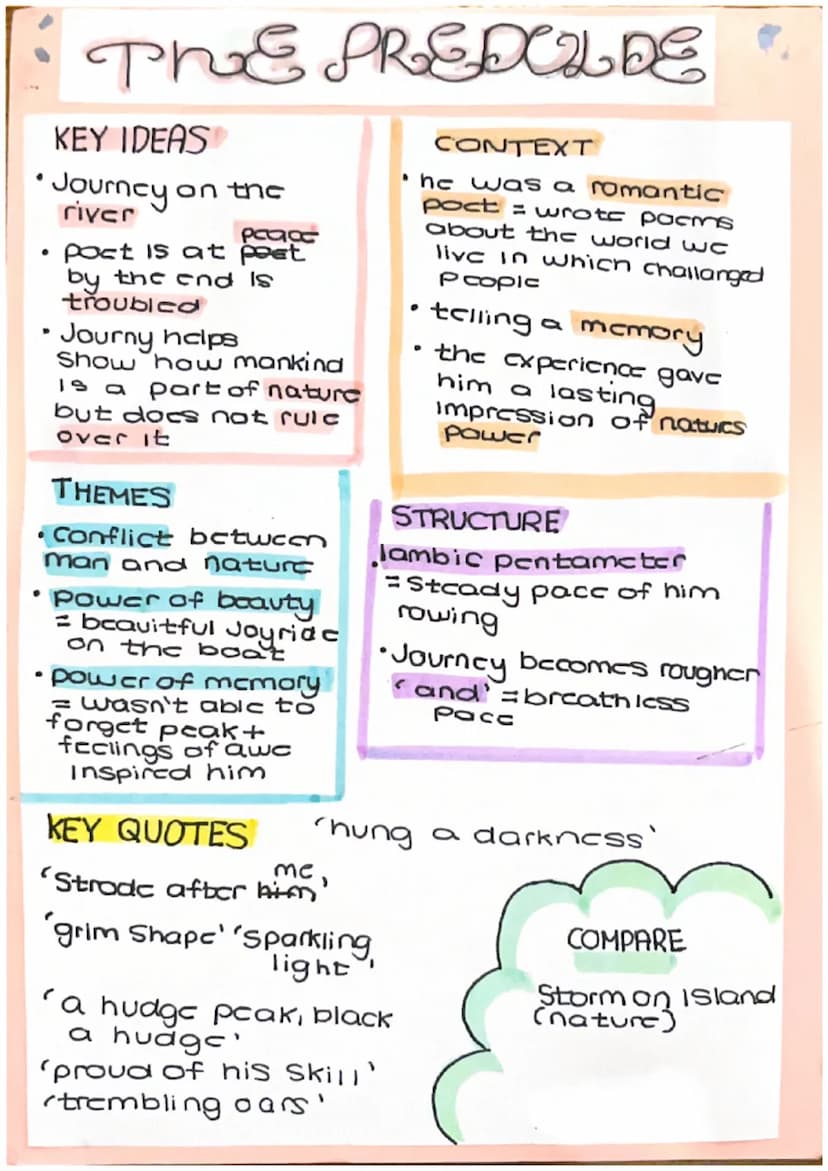 THE PREDULDE
KEY IDEAS
• Journey on the
river
peace
• poet is at poet
by the end is
troubled
• Journy helps
show how mankind
is a part of nature
but does not rule
over it
CONTEXT
• he was a romantic
poet = wrote poems
about the world we
live in which challanged
people
• telling a memory
• the experience gave
him a lasting
impression of naturs
power
THEMES
• conflict between
man and nature
• power of beauty
= beauitful joyride
on the boat
• power of memory
= wasn't able to
forget peak +
feelings of awe
inspired him
STRUCTURE
• Iambic pentameter
= steady pace of him
rowing
• Journey becomes rougher
'and' = breathless
pace
KEY QUOTES
'hung a darkness'
me
'Strode after him'
'grim shape' 'sparkling
light'
'a hudge peak, black
a hudge'
'proud of his skill'
'trembling oars'
COMPARE
Storm on Island
(nature)